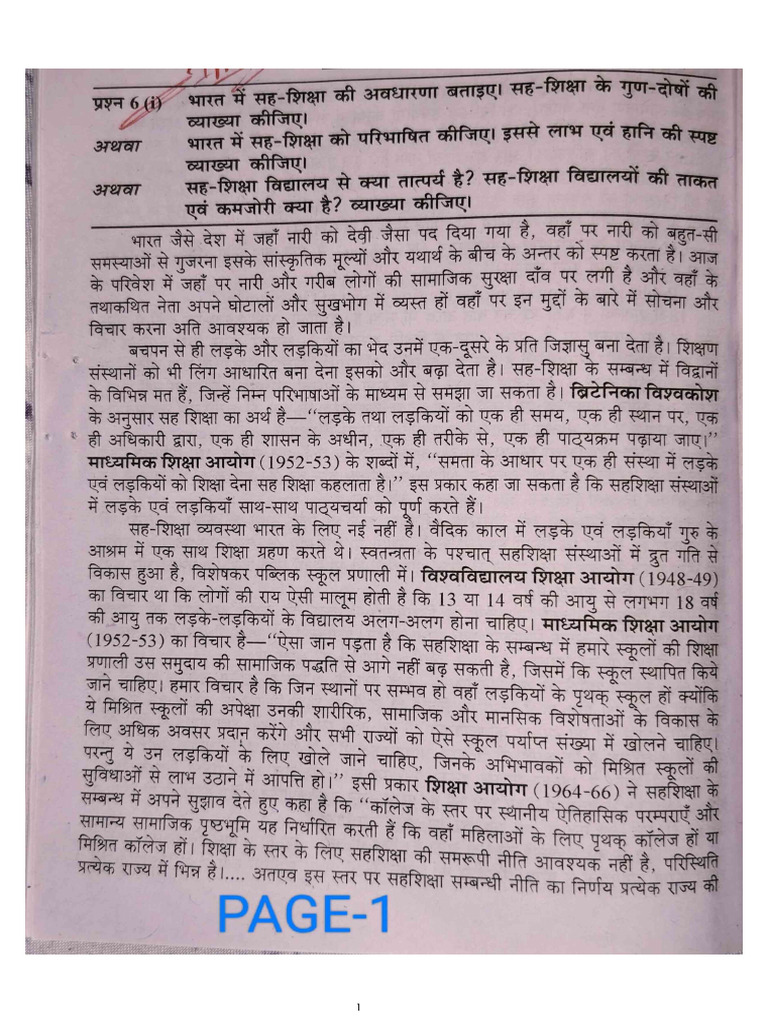 प्रश्न 6 (i) भारत में सह-शिक्षा की अवधारणा बताइए। सह-शिक्षा के गुण-दोषों की
व्याख्या कीजिए।
अथवा भारत में सह-शिक्षा को परिभाषित कीजिए। इससे लाभ एवं हानि की स्पष्ट
व्याख्या कीजिए।
अथवा सह-शिक्षा विद्यालय से क्या तात्पर्य है? सह-शिक्षा विद्यालयों की ताकत
एवं कमजोरी क्या है? व्याख्या कीजिए।
भारत जैसे देश में जहाँ नारी को देवी जैसा पद दिया गया है, वहाँ पर नारी को बहुत-सी
समस्याओं से गुजरना इसके सांस्कृतिक मूल्यों और यथार्थ के बीच के अन्तर को स्पष्ट करता है। आज
के परिवेश में जहाँ पर नारी और गरीब लोगों की सामाजिक सुरक्षा दाँव पर लगी है और वहाँ के
तथाकथित नेता अपने घोटालों और सुखभोग में व्यस्त हों वहाँ पर इन मुद्दों के बारे में सोचना और
विचार करना अति आवश्यक हो जाता है।
बचपन से ही लड़के और लड़कियों का भेद उनमें एक-दूसरे के प्रति जिज्ञासु बना देता है। शिक्षण
संस्थानों को भी लिंग आधारित बना देना इसको और बढ़ा देता है। सह-शिक्षा के सम्बन्ध में विद्वानों
के विभिन्न मत हैं, जिन्हें निम्न परिभाषाओं के माध्यम से समझा जा सकता है। ब्रिटेनिका विश्वकोश
के अनुसार सह शिक्षा का अर्थ है—“लड़के तथा लड़कियों को एक ही समय, एक ही स्थान पर, एक
ही अधिकारी द्वारा, एक ही शासन के अधीन, एक ही तरीके से, एक ही पाठ्यक्रम पढ़ाया जाए।”
माध्यमिक शिक्षा आयोग (1952-53) के शब्दों में, “समता के आधार पर एक ही संस्था में लड़के
एवं लड़कियों को शिक्षा देना सह शिक्षा कहलाता है।” इस प्रकार कहा जा सकता है कि सहशिक्षा संस्थाओं
में लड़के एवं लड़कियाँ साथ-साथ पाठ्यचर्या को पूर्ण करते हैं।
सह-शिक्षा व्यवस्था भारत के लिए नई नहीं है। वैदिक काल में लड़के एवं लड़कियाँ गुरु के
आश्रम में एक साथ शिक्षा ग्रहण करते थे। स्वतन्त्रता के पश्चात् सहशिक्षा संस्थाओं में द्रुत गति से
विकास हुआ है, विशेषकर पब्लिक स्कूल प्रणाली में। विश्वविद्यालय शिक्षा आयोग (1948-49)
का विचार था कि लोगों की राय ऐसी मालूम होती है कि 13 या 14 वर्ष की आयु से लगभग 18 वर्ष
की आयु तक लड़के-लड़कियों के विद्यालय अलग-अलग होना चाहिए। माध्यमिक शिक्षा आयोग
(1952-53) का विचार है—“ऐसा जान पड़ता है कि सहशिक्षा के सम्बन्ध में हमारे स्कूलों की शिक्षा
प्रणाली उस समुदाय की सामाजिक पद्धति से आगे नहीं बढ़ सकती है, जिसमें कि स्कूल स्थापित किये
जाने चाहिए। हमार विचार है कि जिन स्थानों पर सम्भव हो वहाँ लड़कियों के पृथक् स्कूल हों क्योंकि
ये मिश्रित स्कूलों की अपेक्षा उनकी शारीरिक, सामाजिक और मानसिक विशेषताओं के विकास के
लिए अधिक अवसर प्रदान करेंगे और सभी राज्यों को ऐसे स्कूल पर्याप्त संख्या में खोलने चाहिए।
परन्तु ये उन लड़कियों के लिए खोले जाने चाहिए, जिनके अभिभावकों को मिश्रित स्कूलों की
सुविधाओं से लाभ उठाने में आपत्ति हो।” इसी प्रकार शिक्षा आयोग (1964-66) ने सहशिक्षा के
सम्बन्ध में अपने सुझाव देते हुए कहा है कि “कॉलेज के स्तर पर स्थानीय ऐतिहासिक परम्पराएँ और
सामान्य सामाजिक पृष्ठभूमि यह निर्धारित करती हैं कि वहाँ महिलाओं के लिए पृथक् कॉलेज हों या
मिश्रित कॉलेज हों। शिक्षा के स्तर के लिए सहशिक्षा की समरूपी नीति आवश्यक नहीं है, परिस्थिति
प्रत्येक राज्य में भिन्न है।.... अतएव इस स्तर पर सहशिक्षा सम्बन्धी नीति का निर्णय प्रत्येक राज्य की
PAGE-1
1